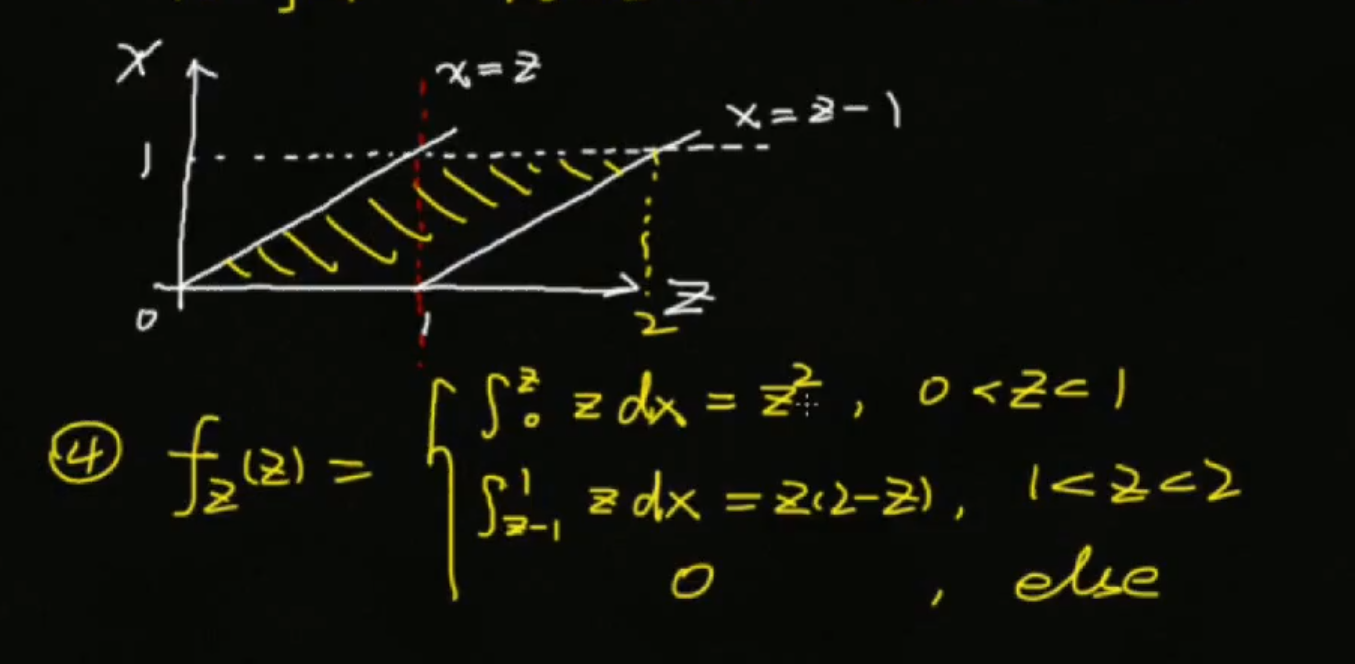 x
x = z
x = z - 1
1
0
1
2
z
④ f_z(z) =
∫_0^z z dx = z^2 , 0 < z < 1
∫_{z-1}^1 z dx = z(2-z), 1 < z < 2
0 , else